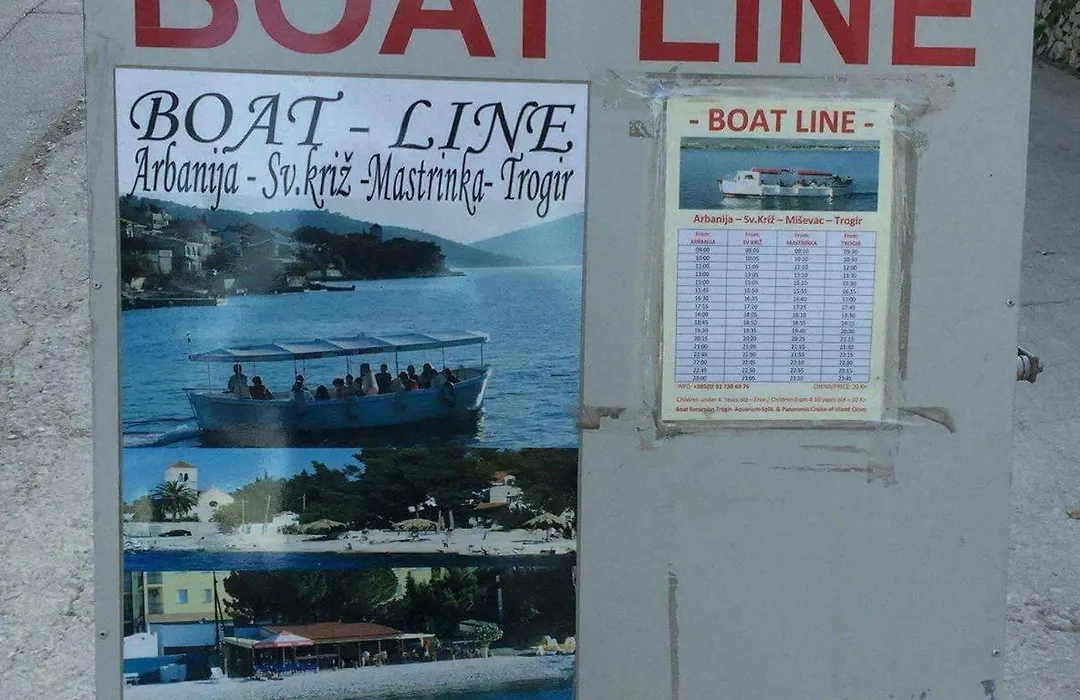 BOAT LINE
BOAT - LINE
Arbanija - Sv.križ -Mastrinka- Trogir
- BOAT LINE -
Arbanija – Sv.Križ – Miševac – Trogir
From: From: From: From:
ARBANIJA SV KRIŽ MASTRINKA TROGIR
09:00 09:05 09:10 09:30
10:00 10:05 10:10 10:30
11:00 11:05 11:10 12:00
13:00 13:05 13:10 14:00
15:00 15:05 15:10 15:30
15:45 15:50 15:55 16:15
16:30 16:35 16:40 17:00
17:15 17:20 17:25 17:45
18:00 18:05 18:10 18:30
18:45 18:50 18:55 19:15
19:30 19:35 19:40 20:00
20:15 20:20 20:25 20:30
21:00 21:05 21:10 21:30
21:45 21:50 21:55 22:15
22:00 22:05 22:10 22:30
22:45 22:50 22:55 23:15
23:00 23:05 23:10 23:45
INFO: +385(0) 91 738 69 76 CIJENA/PRICE: 20 Kn
Children under 4 Years old – Free / Children from 4-10 years old – 10 Kn
Boat Excursion Trogir: Aquarium Split & Panoramic Cruise of Island Čiovo